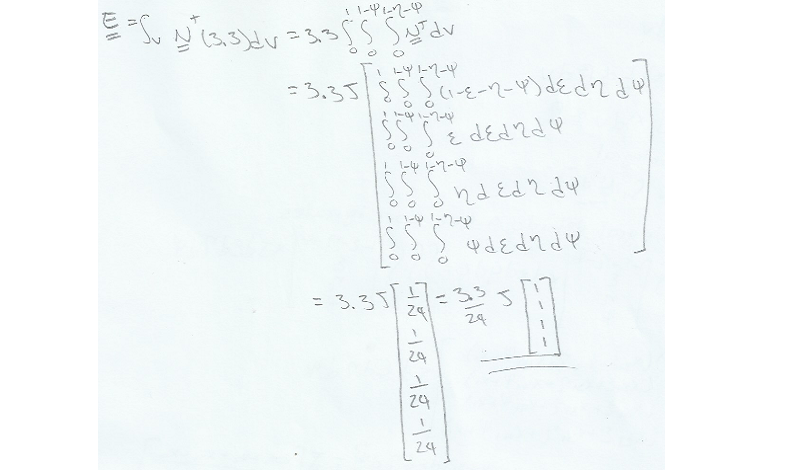 E = ∫v N^T (3.3) dv = 3.3 ∫₀^1 ∫₀^(1-ψ) ∫₀^(1-η-ψ) N^T dv
= 3.3 J [ ∫₀^1 ∫₀^(1-ψ) ∫₀^(1-η-ψ) (1-ε-η-ψ) dε dη dψ
∫₀^1 ∫₀^(1-ψ) ∫₀^(1-η-ψ) ε dε dη dψ
∫₀^1 ∫₀^(1-ψ) ∫₀^(1-η-ψ) η dε dη dψ
∫₀^1 ∫₀^(1-ψ) ∫₀^(1-η-ψ) ψ dε dη dψ ]
= 3.3 J [ 1/24 1/24 1/24 1/24 ] = 3.3/24 J [ 1 1 1 1 ]